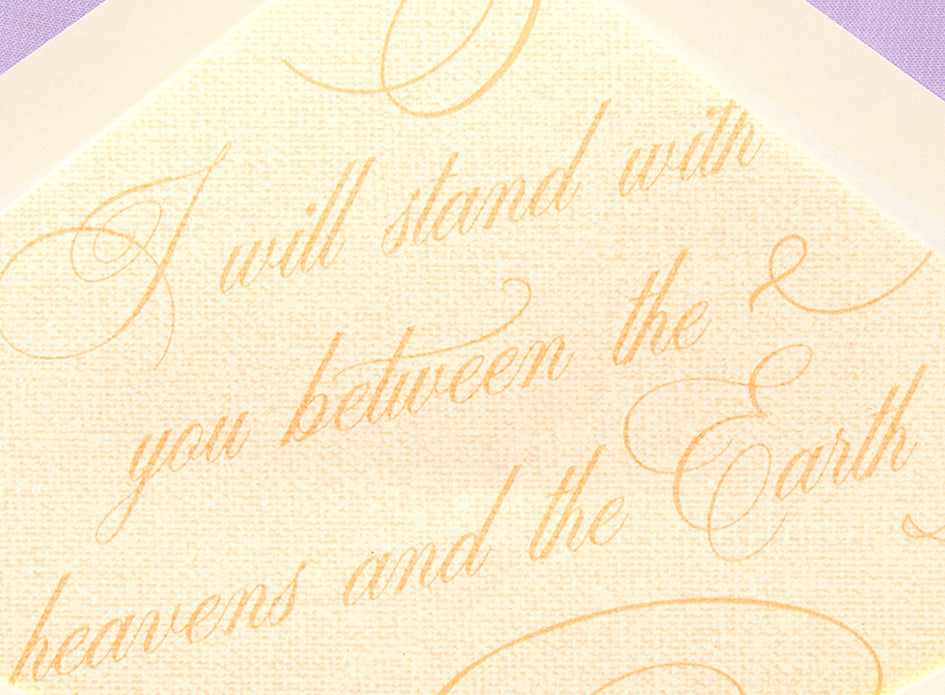 I will stand with
you between the
heavens and the Earth